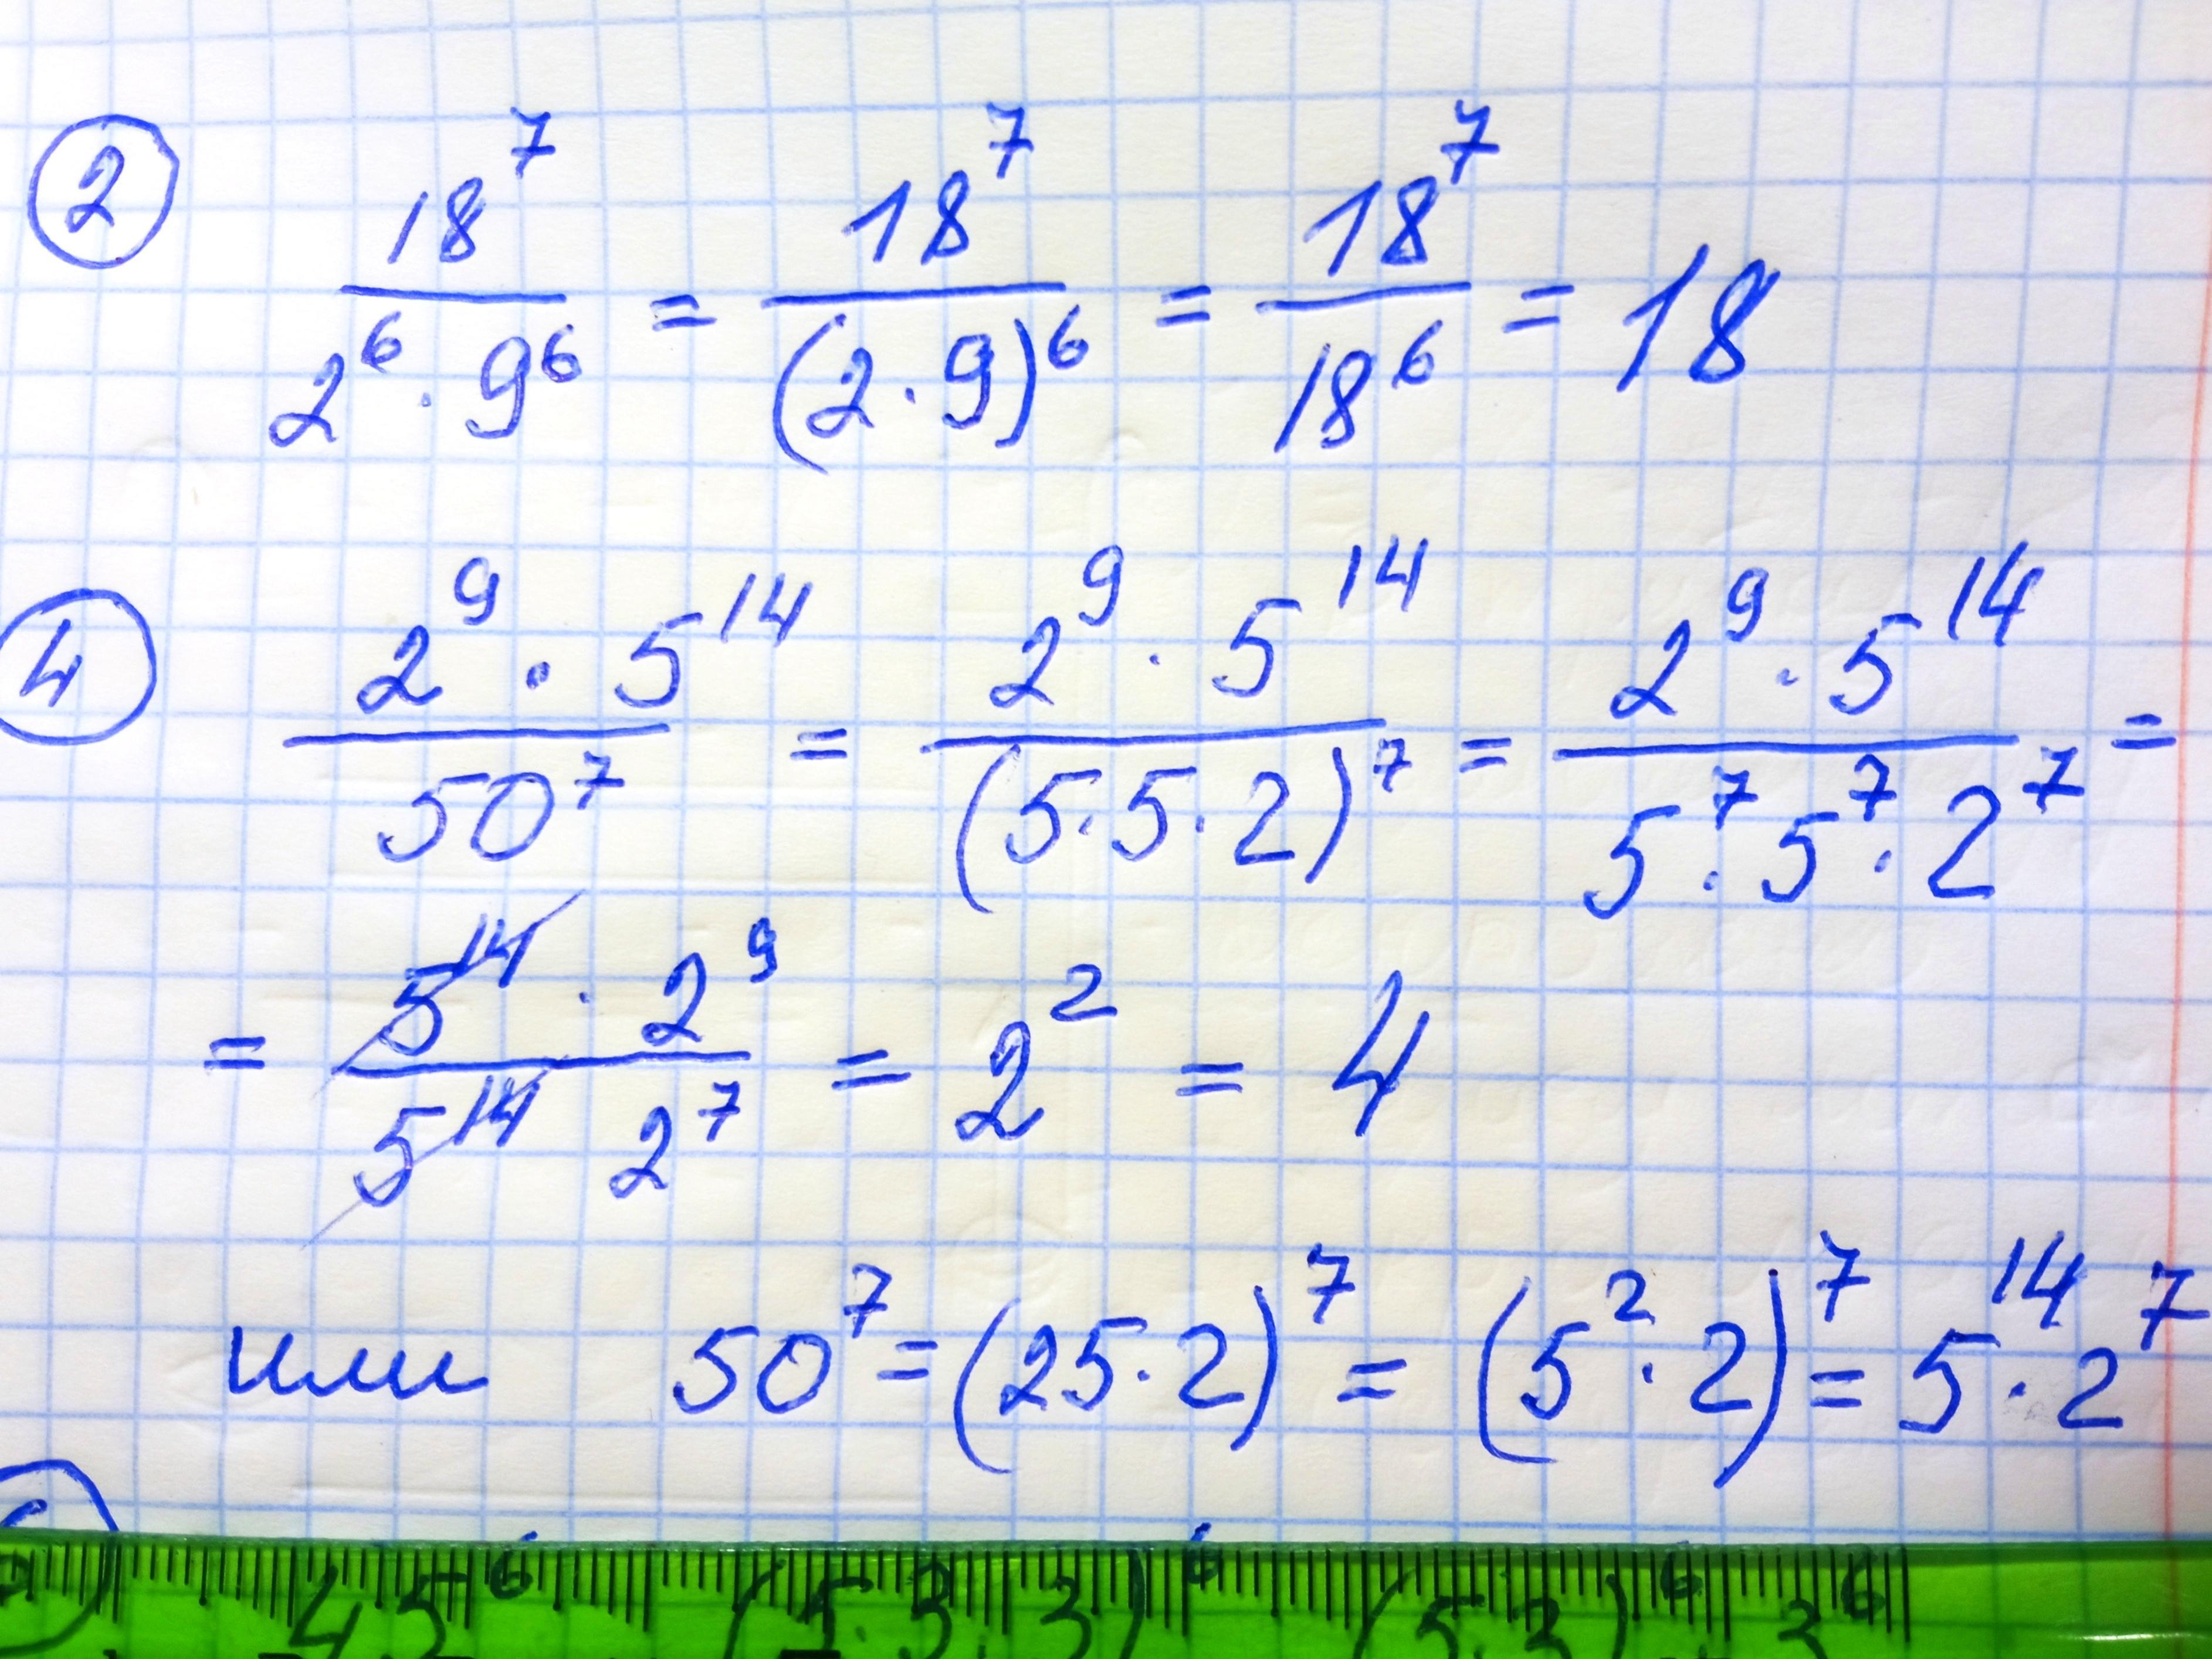 ② 18⁷/(2⁶ · 9⁶) = 18⁷/(2 · 9)⁶ = 18⁷/18⁶ = 18
④ (2⁹ · 5¹⁴)/50⁷ = (2⁹ · 5¹⁴)/(5 · 5 · 2)⁷ = (2⁹ · 5¹⁴)/(5⁷ · 5⁷ · 2⁷) =
= (5¹⁴ · 2⁹)/(5¹⁴ 2⁷) = 2² = 4
или 50⁷ = (25 · 2)⁷ = (5² · 2)⁷ = 5¹⁴ · 2⁷
45⁶ (5 · 3 · 3)⁶ (5 · 3)⁶ · 3⁶